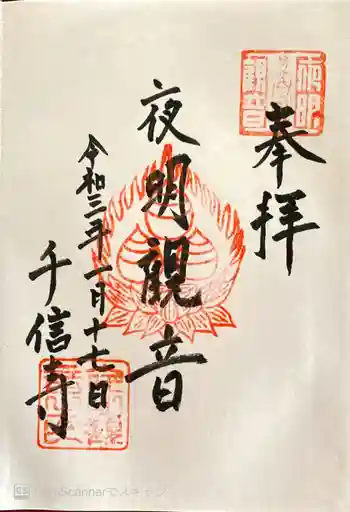 奉拝
夜明観音
令和三年一月十七日
千信寺
CS Scannerでスキャン